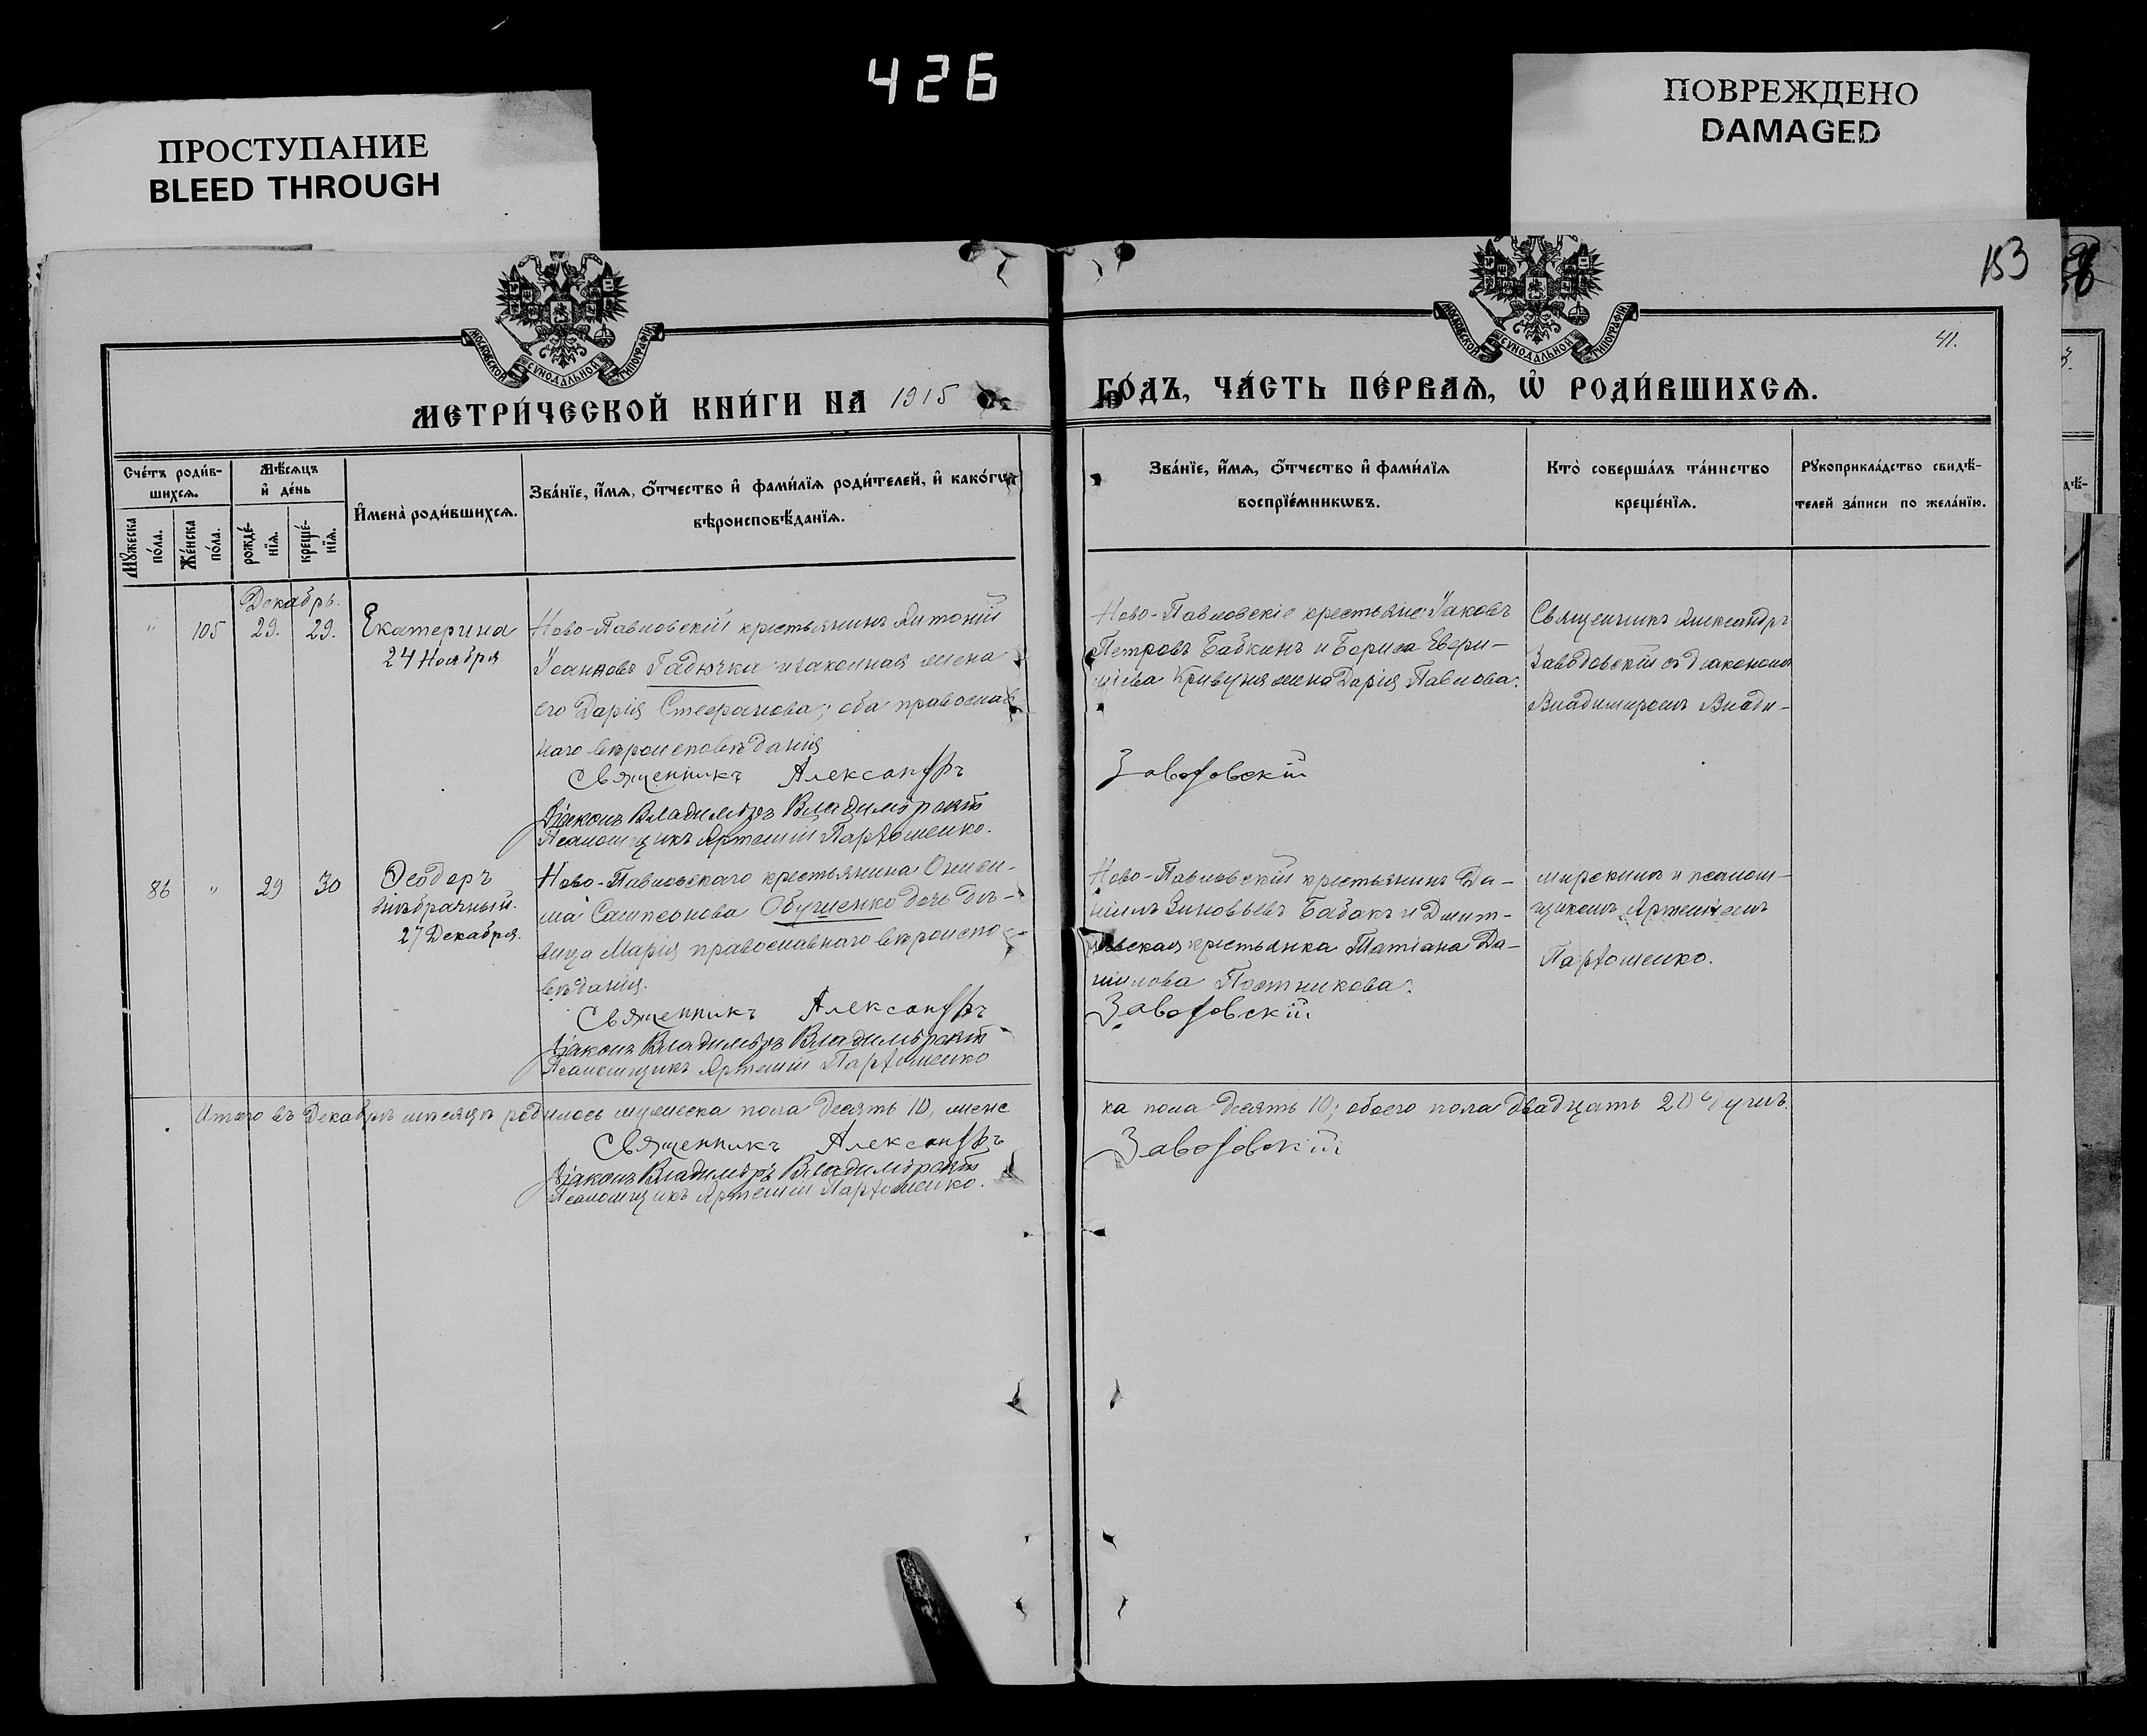 426
ПРОСТУПАНИЕ
BLEED THROUGH
ПОВРЕЖДЕНО
DAMAGED
153
41.
МОСКОВСКОЙ СУНОДАЛЬНОЙ ТИПОГРАФІИ
МОСКОВСКОЙ СУНОДАЛЬНОЙ ТИПОГРАФІИ
МЕТРИ́ЧЕСКОЙ КНИ́ГИ НА 1915
ГО́ДЪ, ЧА́СТЬ ПЕ́РВАѦ, Ѡ҆ РОДИ́ВШИХСѦ.
Сче́тъ роди́в-
шихсѧ.
Мѣ́сѧцъ
и҆ де́нь
Мꙋ́жеска
по́ла.
Же́нска
по́ла.
рожде́-
нїѧ.
креще́-
нїѧ.
И҆мена̀ роди́вшихсѧ.
Зва́нїе, и҆́мѧ, ѻ҆́тчество и҆ фами́лїѧ роди́телей, и҆ како́гѡ
вѣроисповѣ́данїѧ.
Зва́нїе, и҆́мѧ, ѻ҆́тчество и҆ фами́лїѧ
воспрїе́мникѡвъ.
Кто̀ соверша́лъ та́инство
креще́нїѧ.
Рꙋкоприкла́дство свидѣ́-
телей за́писи по жела́нїю.
Декабрь.
" 105 29. 29.
Екатерина
24 Ноября
Ново-Павловскій крестьянинъ Антоній
Іоанновъ Гадючка и законная жена
его Дарія Стефанова; оба православ
наго вѣроисповѣданія
Священникъ Александръ
Діаконъ Владиміръ
Псаломщикъ Артемій Пархоменко.
Ново-Павловскіе крестьяне: Іаковъ
Петровъ Бабкинъ и Бориса
Кривуня жена Дарія Павлова.
Заводовскій
Священникъ Александръ
Заводовскій съ діакономъ
Владимиромъ Влади-
86 " 29 30
Ѳеодоръ
внѣбрачный.
27 Декабря.
Ново-Павловскаго крестьянина Ониси-
ма Сампсонова Обушенко дочь дѣ-
вица Марія православнаго вѣроиспо
вѣданія.
Священникъ Александръ
Діаконъ Владиміръ
Псаломщикъ Артемій Пархоменко
Ново-Павловскій крестьянинъ Да-
ніилъ Зиновьевъ Бабакъ и Дмит-
ровская крестьянка Татіана Да-
ніилова Постникова.
Заводовскій
мирскимъ и псалом-
щикомъ Артеміемъ
Пархоменко.
Итого въ Декабрѣ мѣсяцѣ родилось мужеска пола десять 10, женс
ка пола десять 10; обоего пола двадцать 20 душъ.
Священникъ Александръ
Заводовскій
Діаконъ Владиміръ
Псаломщикъ Артемій Пархоменко.